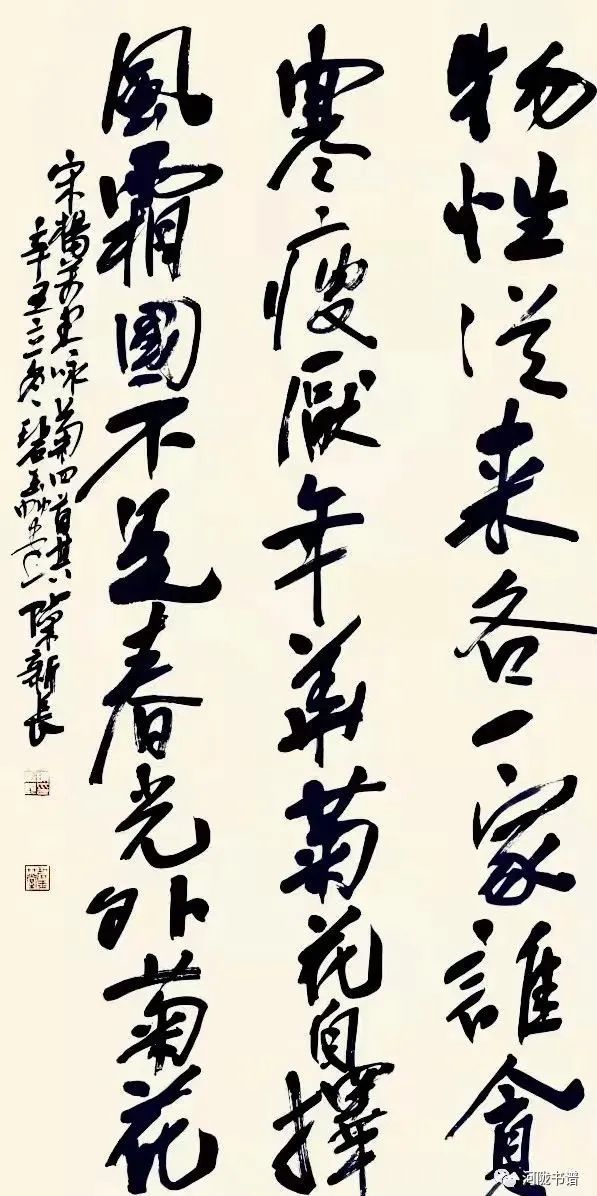 物性從来各一家誰貪
寒瘦厭年華菊花自擇
風霜國不是春光外菊花
宋楊萬里咏菊四首其
辛丑立冬 陳新長
河陇书谱